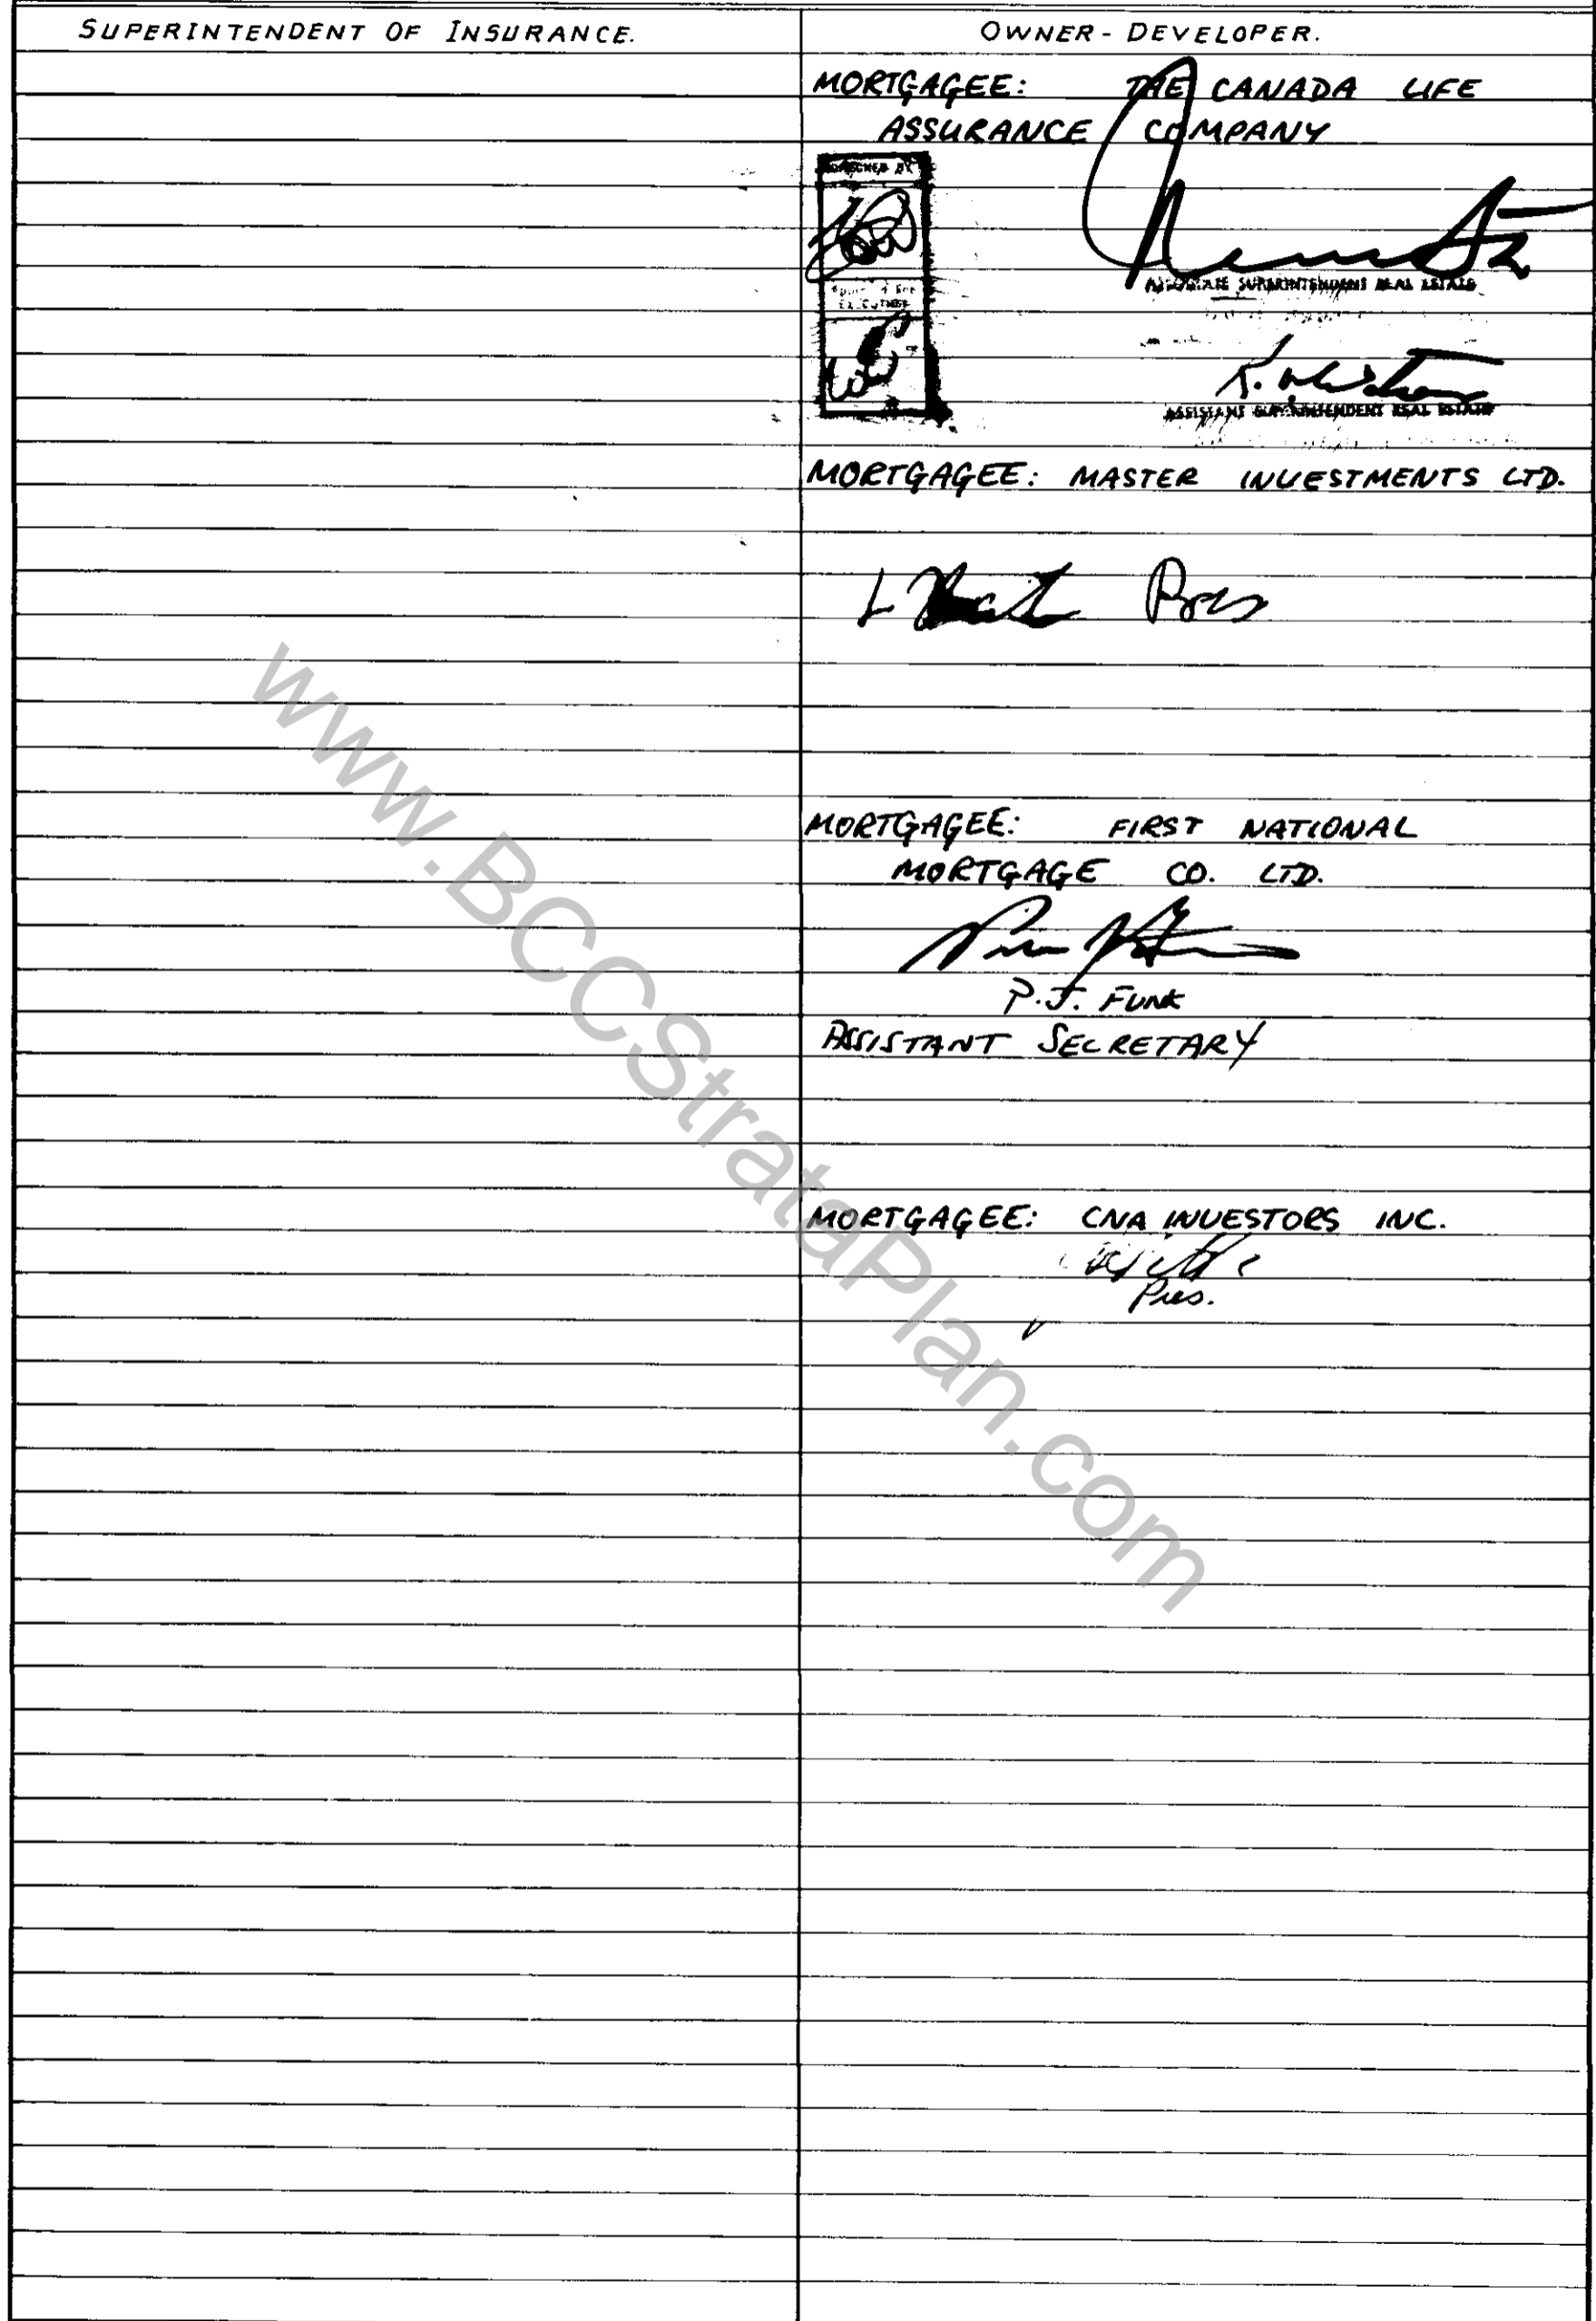 SUPERINTENDENT OF INSURANCE.
OWNER - DEVELOPER.
MORTGAGEE: THE CANADA LIFE
ASSURANCE COMPANY
ASSOCIATE SUPERINTENDENT REAL ESTATE
ASSISTANT SUPERINTENDENT REAL ESTATE
MORTGAGEE: MASTER INVESTMENTS LTD.
Pres
MORTGAGEE: FIRST NATIONAL
MORTGAGE CO. LTD.
P.J. FUNK
ASSISTANT SECRETARY
MORTGAGEE: CNA INVESTORS INC.
Pres.
www.BCCStrataPlan.com